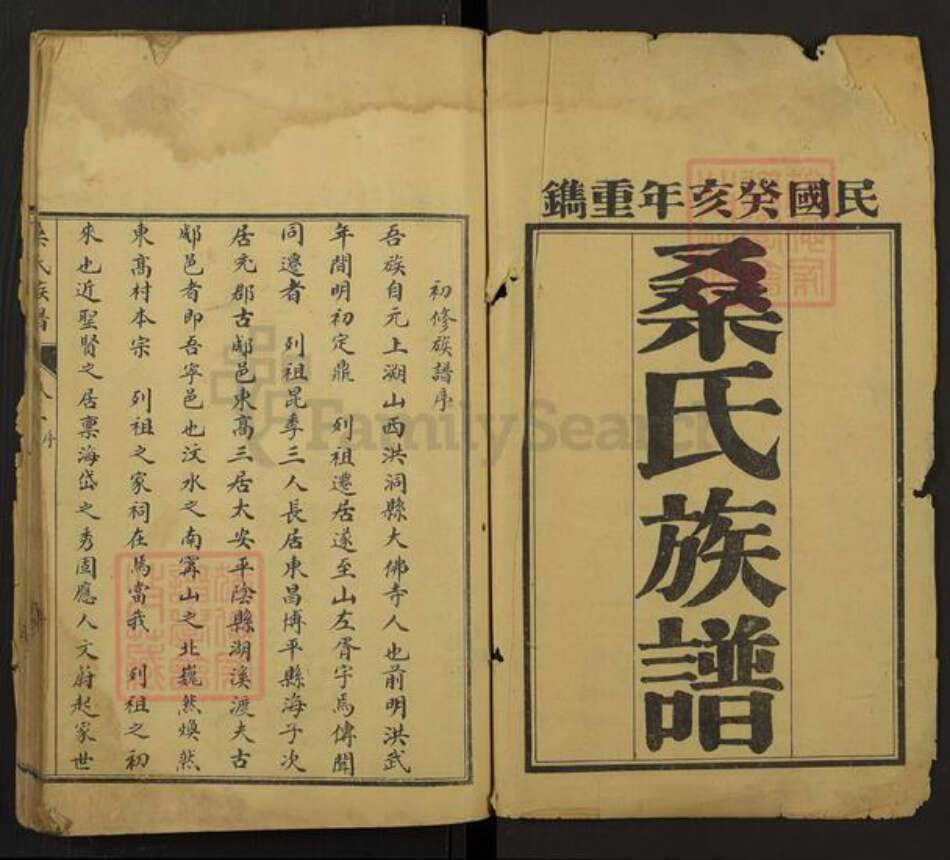 民國癸亥年重鐫
桑氏族譜
初修族譜序
吾族自元上溯山西洪洞縣大佛寺人也前明洪武
年間明初定鼎 列祖遷居遂至山左胥宇焉傳聞
同遷者 列祖昆季三人長居東昌博平縣海子次
居兖郡古郕邑東高三居大安平陰縣湖溪渡夫古
郕邑者即吾寧邑也汶水之南寗山之北巍然煥然
東高村本宗 列祖之家祠在焉當我 列祖之初
來也近聖賢之居稟海岱之秀固應人文蔚起家世
桑氏族譜
序
FamilySearch